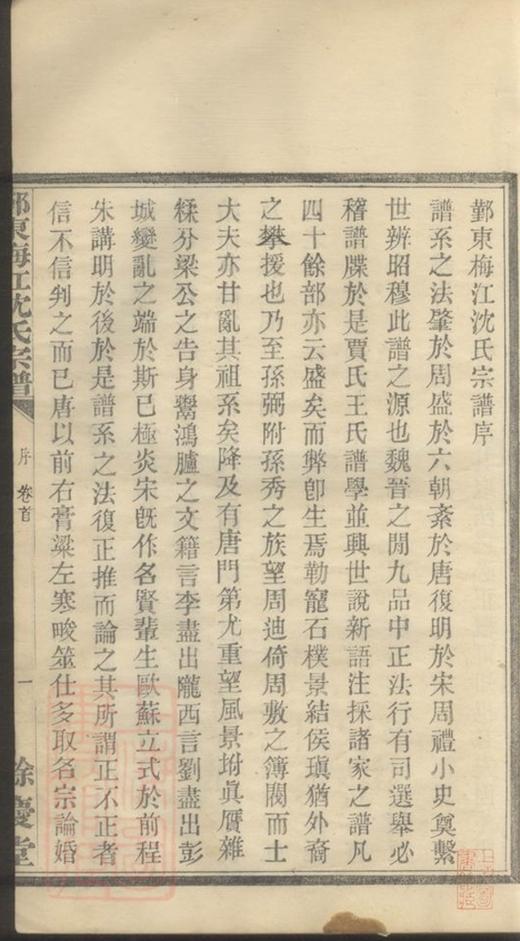 鄞東梅江沈氏宗譜序
譜系之法肇於周盛於六朝紊於唐復明於宋周禮小史奠繫
世辨昭穆此譜之源也魏晉之閒九品中正法行有司選舉必
稽譜牒於是賈氏王氏譜學並興世說新語注採諸家之譜凡
四十餘部亦云盛矣而弊卽生焉勒寵石樸景結侯瑱猶外裔
之攀援也乃至孫弼附孫秀之族望周迪倚周敷之簿閥而士
大夫亦甘亂其祖系矣降及有唐門第尤重望風景坿眞贋雜
糅芬梁公之告身鬻鴻臚之文籍言李盡出隴西言劉盡出彭
城變亂之端於斯已極炎宋旣作名賢輩生歐蘇立式於前程
朱講明於後於是譜系之法復正推而論之其所謂正不正者
信不信判之而已唐以前右膏粱左寒畯筮仕多取名宗論婚
鄞東梅江沈氏宗譜
序 卷首
一
餘慶堂